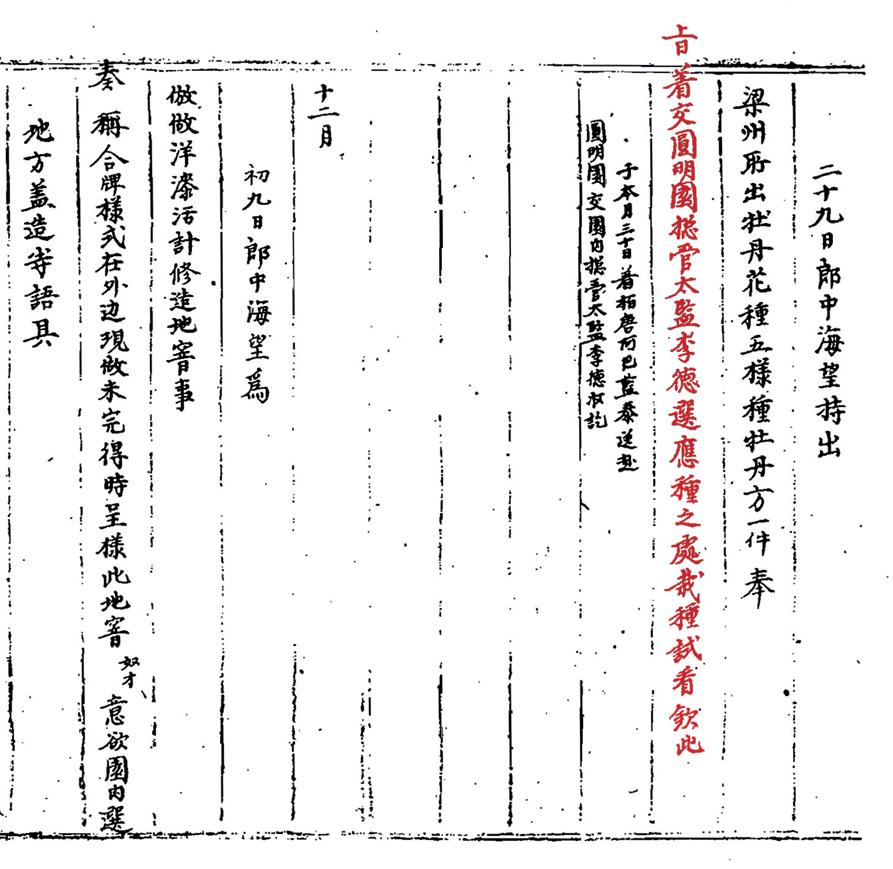 二十九日郎中海望持出
梁州所出牡丹花種五樣種牡丹方一件奉
旨着交圓明園捴管太監李德選應種之處栽種試看欽此
于本月三十日着栢唐阿巴藍泰送赴
圓明園交園内捴管太監李德收訖
十二月
初九日郎中海望爲
倣做洋漆活計修造地窨事
奏稱合牌樣式在外边現做未完得時呈樣此地窨奴才意欲園内選
地方盖造等語具